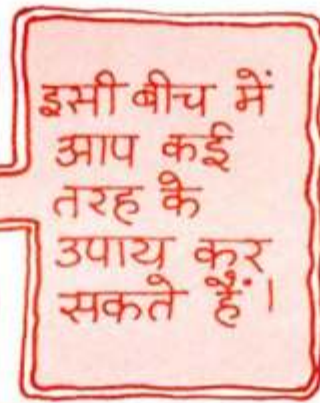 इसी बीच में
आप कई
तरह के
उपाय कर
सकते हैं।